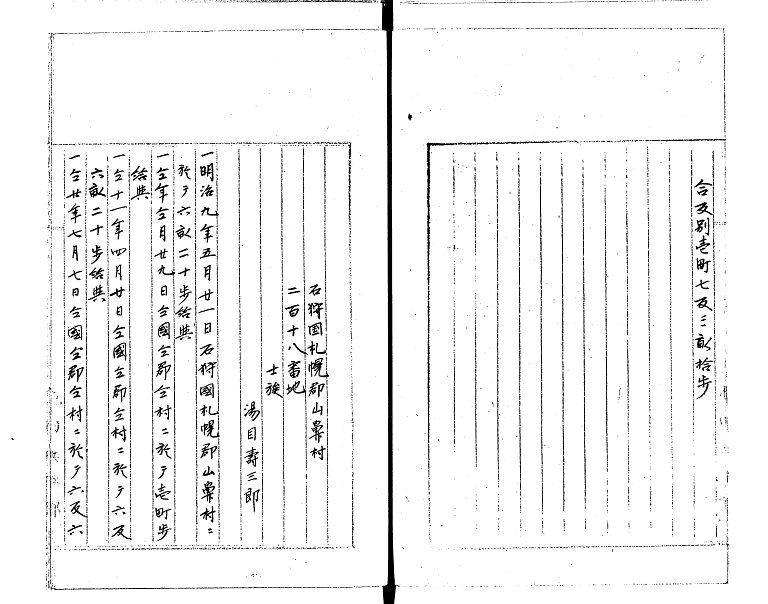 合反別壱町七反三畝拾歩
石狩国札幌郡山鼻村
二百十八番地
士族
湯目壽三郎
一明治九年五月廿一日石狩國札幌郡山鼻村ニ
於テ六畝二十歩給與
一仝年仝月廿九日仝國仝郡仝村ニ於テ壱町歩
給與
一仝十一年四月廿日仝國仝郡仝村ニ於テ六反
六畝二十歩給與
一仝廿年七月七日仝國仝郡仝村ニ於テ六反六